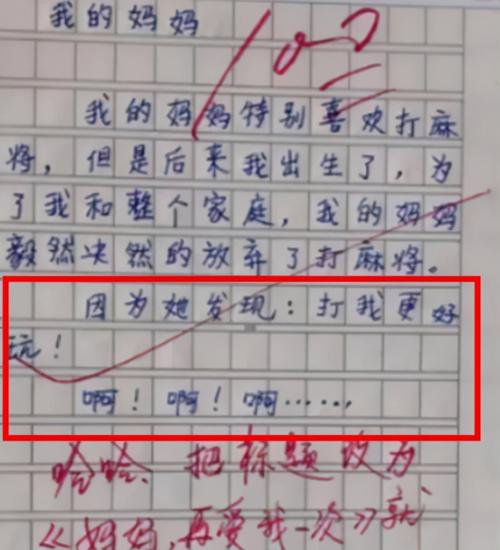 我的妈妈
我的妈妈特别喜欢打麻
将，但是后来我出生了，为
了我和整个家庭，我的妈妈
毅然决然的放弃了打麻将。
因为她发现：打我更好
玩！
啊！啊！啊……
哈哈、把标题改为
《妈妈，再爱我一次》就